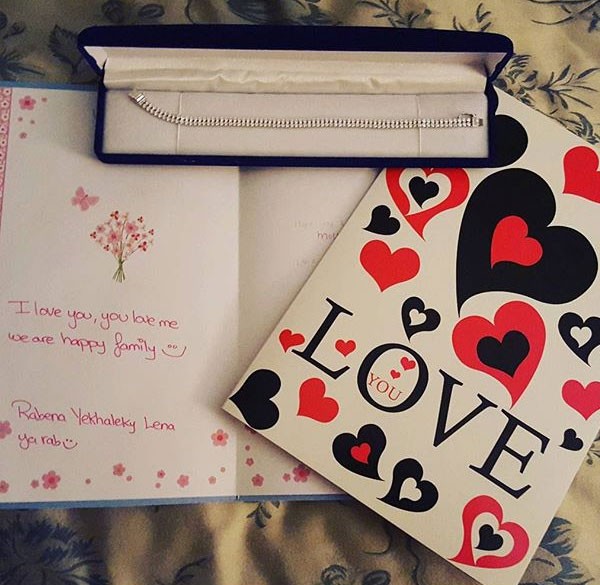 I love you, you love me
we are happy family
Rabena Yekhaleky Lena
ya rab
LOVE
YOU